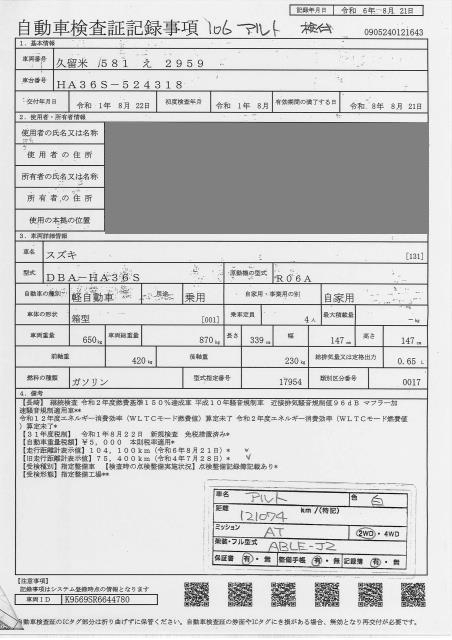 記録年月日 令和 6年 8月 21日
自動車検査証記録事項 106 アルト
0905240121643
1. 基本情報
車両番号 久留米 581 え 2959
車台番号 HA36S-524318
交付年月日 令和 1年 8月 22日 初度検査年月 令和 1年 8月 有効期間の満了する日 令和 8年 8月 21日
2. 使用者・所有者情報
使用者の氏名又は名称
使用者の住所
所有者の氏名又は名称
所有者の住所
使用の本拠の位置
3. 車両詳細情報
車名 スズキ [131]
型式 DBA-HA36S 原動機の型式 R06A
自動車の種別 軽自動車 用途 乗用 自家用・事業用の別 自家用
車体の形状 箱型 [001] 乗車定員 4人 最大積載量 -kg
車両重量 650kg 車両総重量 870kg 長さ 339cm 幅 147cm 高さ 147cm
前軸重 420kg 後軸重 230kg 総排気量又は定格出力 0.65L
燃料の種類 ガソリン 型式指定番号 17954 類別区分番号 0017
4. 備考
【長崎】 継続検査 令和2年度燃費基準150%達成車 平成10年騒音規制車 近接排気騒音規制値96dB マフラー加
速騒音規制適用車**
令和12年度エネルギー消費効率(WLTCモード燃費値)算定未了 令和2年度エネルギー消費効率(WLTCモード燃費値
)算定未了*
【31年度税制】 令和1年8月22日 新規検査 免税措置済み*
【自動車重量税額】¥5,000 本則税率適用*
【走行距離計表示値】104,100km(令和6年8月21日)*
【旧走行距離計表示値】75,400km(令和4年7月28日)*
【受検種別】指定整備車 【検査時の点検整備実施状況】点検整備記録簿記載あり*
【受検形態】指定整備工場**
車名 アルト 色 白
距離 121074 km/(特記)
ミッション AT 2WD・4WD
架装・フル型式 ABLE-J2
保証書 有・無 整備手帳 有・無 記録簿 有・無
【注意事項】
記録事項はシステム登録時点の情報となります
車両ID K9569SR6644780
自動車検査証のICタグ部分は折り曲げずに保管ください。自動車検査証の券面やICタグにき損がある場合、無効となり再交付が必要です。